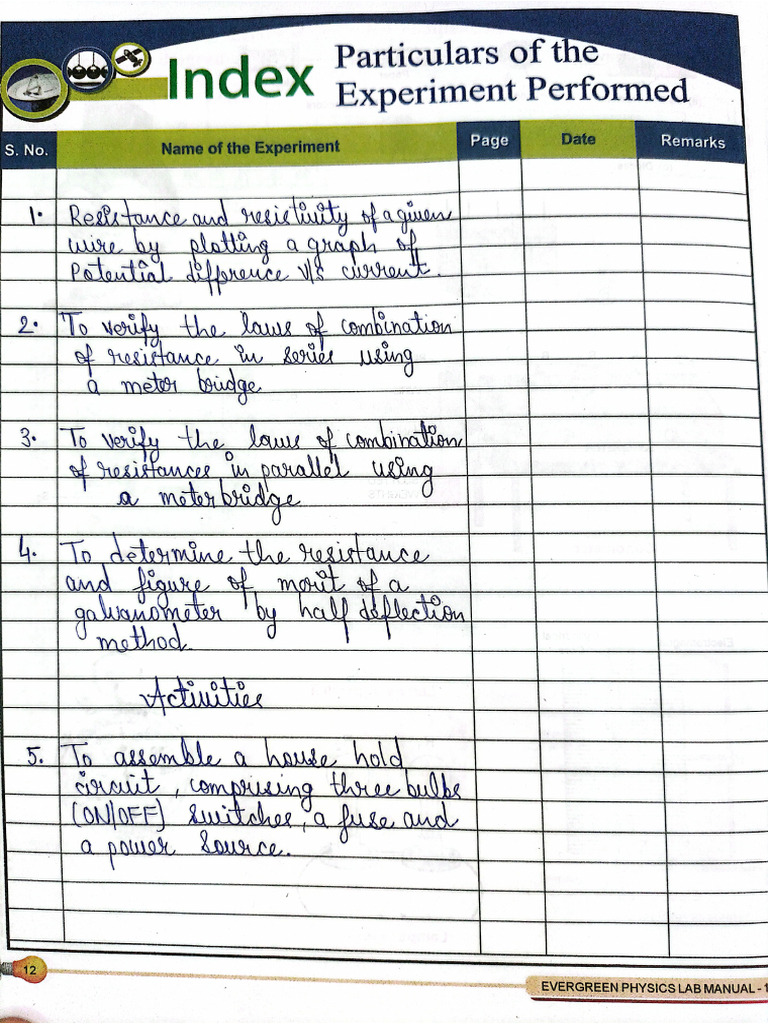 Index Particulars of the
Experiment Performed
S. No. Name of the Experiment Page Date Remarks
1. Resistance and resistivity of a given
wire by plotting a graph of
Potential difference v/s current.
2. To verify the laws of combination
of resistance in series using
a meter bridge
3. To verify the laws of combination
of resistances in parallel using
a meter bridge
4. To determine the resistance
and figure of merit of a
galvanometer by half deflection
method.
Activities
5. To assemble a house hold
circuit, comprising three bulbs
(ON/OFF) switches, a fuse and
a power source.
12
EVERGREEN PHYSICS LAB MANUAL - 1